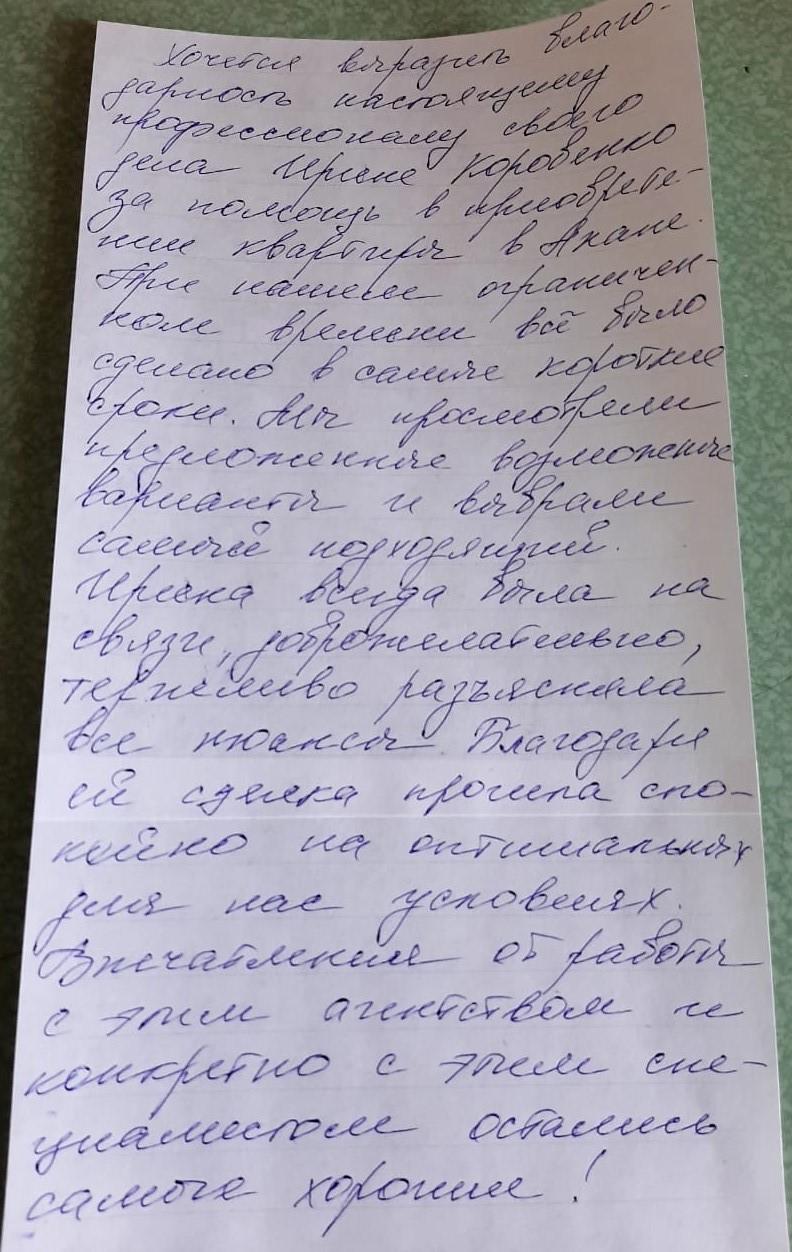 Хочется выразить благо-
дарность настоящему
профессионалу своего
дела Ирине Коровенко
за помощь в приобрете-
нии квартиры в Анапе.
При нашем ограничен-
ном времени всё было
сделано в самые короткие
сроки. Мы просмотрели
предложенные возможные
варианты и выбрали
самый подходящий.
Ирина всегда была на
связи, доброжелательно,
терпеливо разъясняла
все нюансы. Благодаря
ей сделка прошла спо-
койно на оптимальных
для нас условиях.
Впечатления от работы
с этим агентством и
конкретно с этим спе-
циалистом остались
самые хорошие!